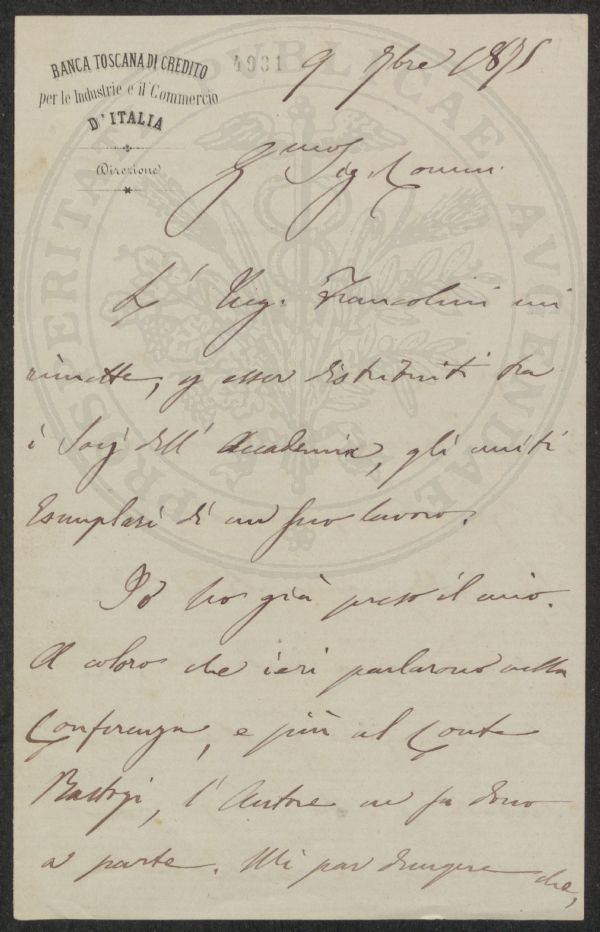 BANCA TOSCANA DI CREDITO
per le Industrie e il Commercio
D'ITALIA
Direzione
4931
9 Xbre 1875
Sig. Comm.
L' Ing. Francolini mi
rimette, p esser distribuiti tra
i Socj dell' Accademia, gli uniti
Esemplari di un suo lavoro.
Io ho già preso il mio.
A coloro che ieri parlarono nella
Conferenza, e più al Conte
Bastogi, l' Autore ne fa dono
a parte. Mi par dunque che,
PROSPERITATI PVBLICAE AVGENDAE